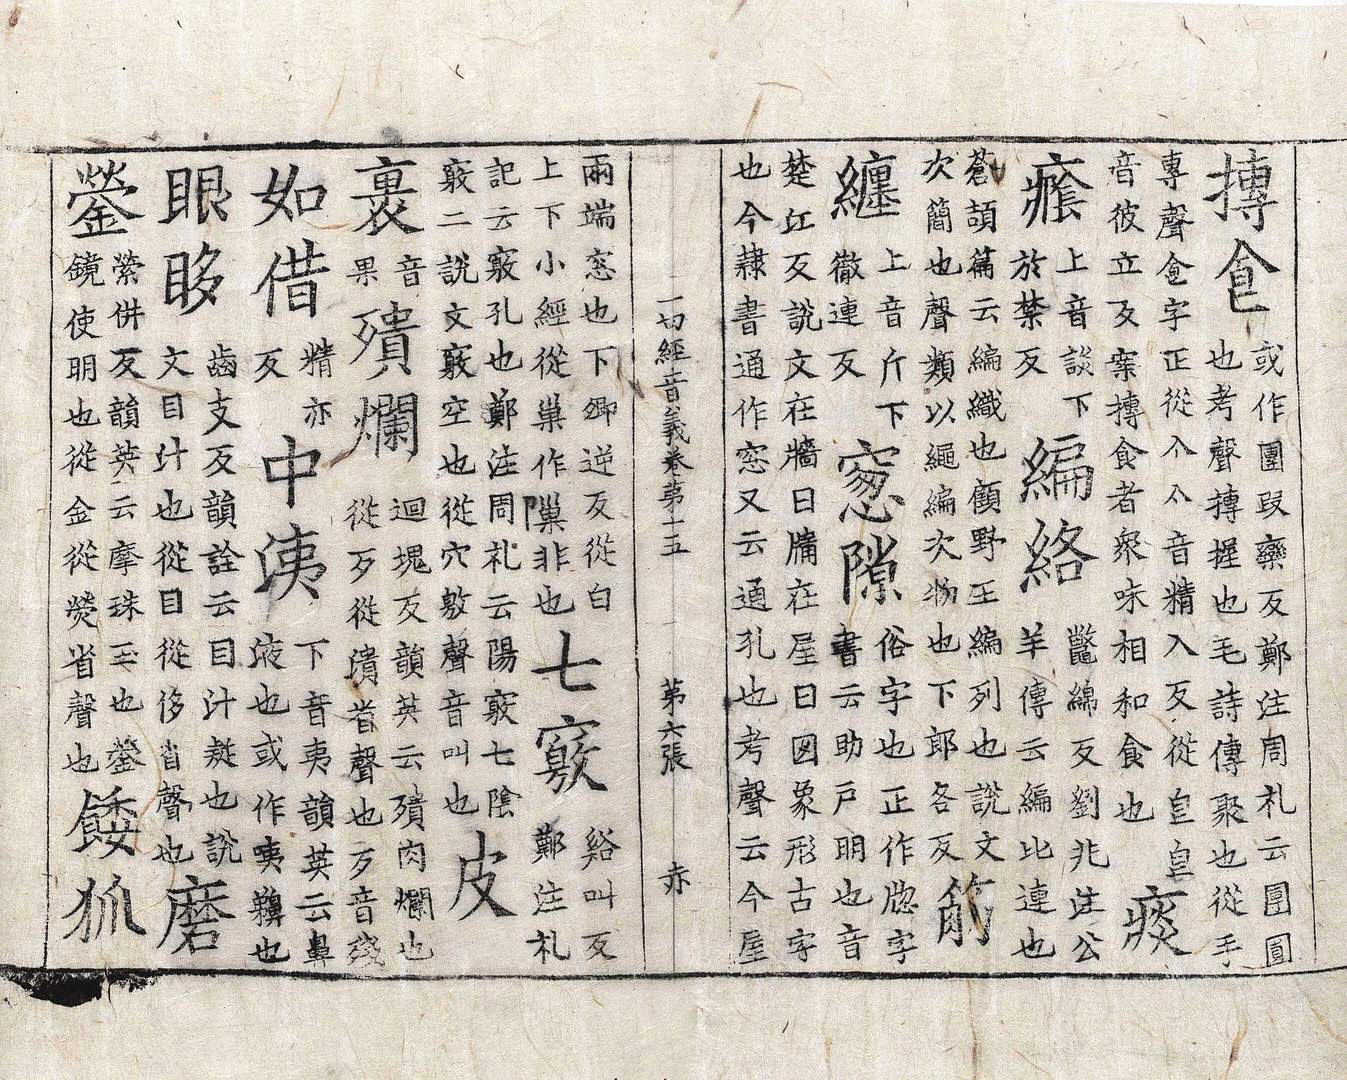 摶食或作團段欒反鄭注周礼云團圓也考聲摶握也毛詩傳聚也從手
專聲食字正從亼亼音精入反從皀皀音彼立反案摶食者衆味相和食也痰
癊上音談下於禁反編絡鼈綿反劉兆注公羊傳云編比連也
蒼頡篇云編織也顧野王編列也說文次簡也聲類以繩編次物也下郎各反筋
纏上音斤下徹連反窓隙俗字也正作牎字書云助戸明也音
楚江反說文在牆曰牖在屋曰囱象形古字也今隷書通作窓又云通孔也考聲云今屋
一切經音義卷第十五 第六張 赤
兩端窓也下卿逆反從白上下小經從巢作隟非也七竅谿叫反鄭注札
記云竅孔也鄭注周礼云陽竅七陰竅二說文竅空也從穴敫聲音叫也皮
裹音果殨爛迴塊反韻英云殨肉爛也從歹從潰省聲也歹音殘
如借精亦反中洟下音夷韻英云鼻液也或作咦也
眼眵齒支反韻詮云目汁凝也說文目汁也從目從侈省聲也磨
鎣縈併反韻英云摩珠玉也鎣鏡使明也從金從熒省聲也餧狐